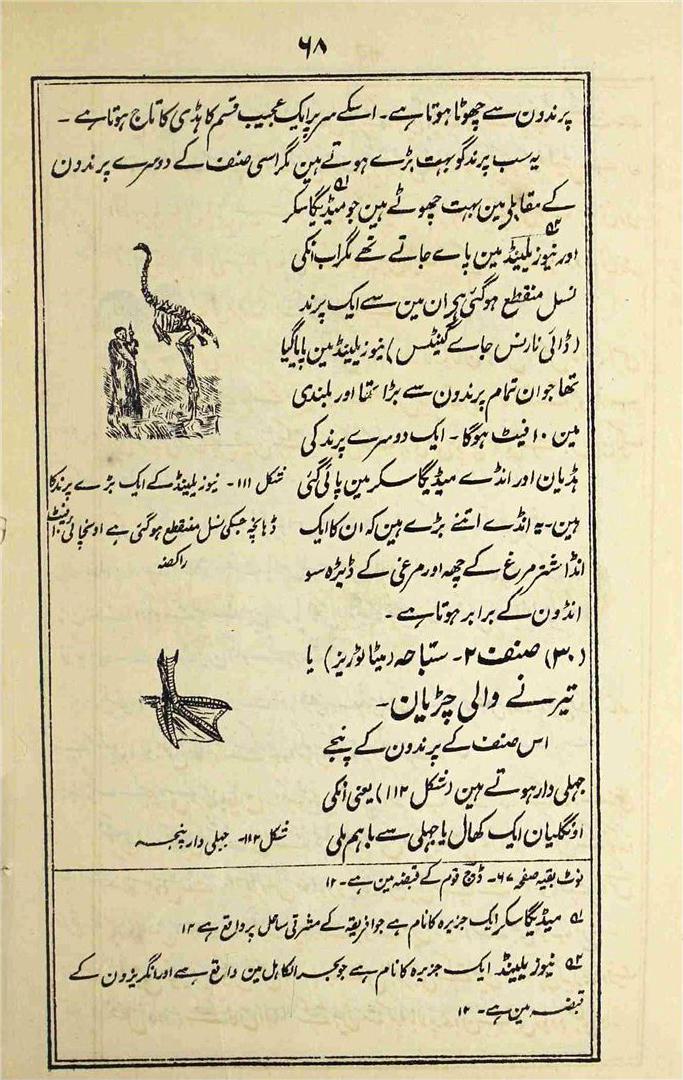 ۶۸
پرندون سے چھوٹا ہوتا ہے۔ اسکے سر پر ایک عجیب قسم کا ہڈی کا تاج ہوتا ہے ۔
یہ سب پرند گو بہت بڑے ہوتے ہین مگر اسی صنف کے دوسرے پرندون
کے مقابلے مین بہت چھوٹے ہین جو میڈیگاسکر
اور نیوزیلینڈ مین پاے جاتے تھے مگر اب انکی
نسل منقطع ہوگئی ہے ان مین سے ایک پرند
(ڈائی نارنس جاے گینٹس) نیوزیلینڈ مین پایا گیا
تھا جو ان تمام پرندون سے بڑا تھا اور بلندی
مین ۱۰ فیٹ ہوگا ۔ ایک دوسرے پرند کی
ہڈیان اور انڈے میڈیگاسکر مین پائی گئی
ہین۔ یہ انڈے اتنے بڑے ہین کہ ان کا ایک
انڈا شتر مرغ کے چھہ اور مرغی کے ڈیڑہ سو
انڈون کے برابر ہوتا ہے ۔
شکل ۱۱۱۔ نیوزیلینڈ کے ایک بڑے پرند کا
ڈہانچہ جسکی نسل منقطع ہوگئی ہے اونچائی ۱۰ فیٹ
(۳۰) صنف ۲۔ سباحہ (میٹا ٹوریز) یا
تیرنے والی چڑیان۔
اس صنف کے پرندون کے پنجے
جہلی دار ہوتے ہین (شکل ۱۱۲) یعنی انکی
اونگلیان ایک کھال یا جہلی سے باہم ملی
شکل ۱۱۲۔ جہلی دار پنجہ
نوٹ بقیہ صفحہ ۶۷۔ ڈچ قوم کے قبضہ مین ہے۔ ۱۲
۱ میڈیگاسکر ایک جزیرہ کا نام ہے جو افریقہ کے مشرقی ساحل پر واقع ہے ۱۲
۲ نیوزیلینڈ ایک جزیرہ کا نام ہے جو بحر الکاہل مین واقع ہے اور انگریزون کے
قبضہ مین ہے۔ ۱۲